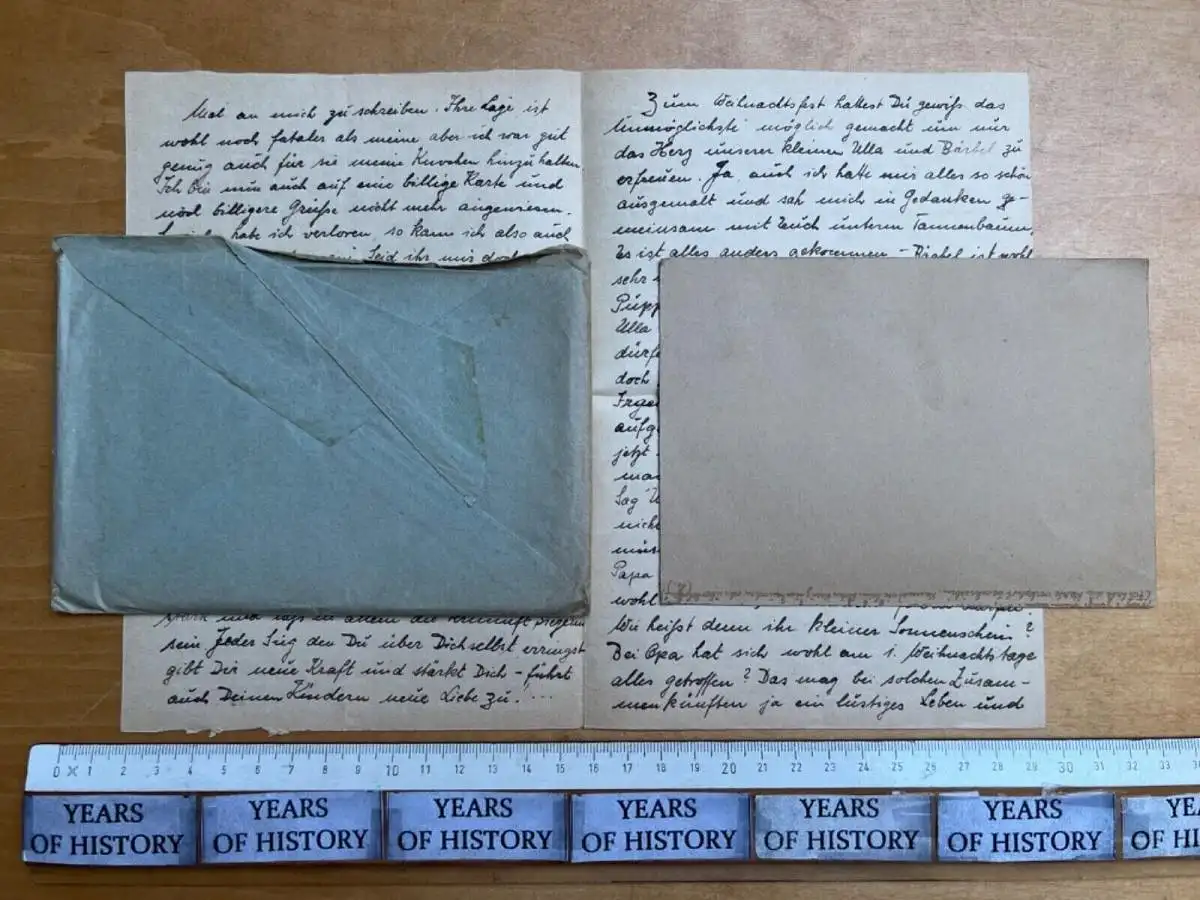 Mal an mich zu schreiben. Ihre Lage ist
wohl noch fataler als meine aber ich war gut
genug auch für sie meine Knochen hinzuhalten.
Ich bin nun auch auf eine billige Karte und
noch billigere Grüße nicht mehr angewiesen.
hate ich verloren, so kann ich also auch
Seid ihr mir doch
und laß in allem die Vernunft siegen
sein Jeder Sieg den Du über Dich selbst erringst
gibt Dir neue Kraft und stärkt Dich – führt
auch Deinen Kindern neue Liebe zu! ...
Zum Weihnachtsfest hattest Du gewiß das
Unmöglichste möglich gemacht um nur
das Herz unserer kleinen Ulla und Bärbel zu
erfreuen. Ja, auch ich hatte mir alles so schön
ausgemalt und sah mich in Gedanken ge-
meinsam mit Euch unterm Tannenbaum.
Es ist alles anders gekommen – Bärbel ist wohl
sehr
Püpp
Ulla
dürfe
doch
Irge
aufg
jetzt
man
Sag
nicht
müs
Papa
wohl
Wie heißt denn ihr kleiner Sonnenschein?
Bei Opa hat sich wohl am 1. Weihnachtstage
alles getroffen? Das mag bei solchen Zusam-
menkünften ja ein lustiges Leben und
0 1 2 3 4 5 6 7 8 9 10 11 12 13 14 15 16 17 18 19 20 21 22 23 24 25 26 27 28 29 30 31 32 33
YEARS OF HISTORY YEARS OF HISTORY YEARS OF HISTORY YEARS OF HISTORY YEARS OF HISTORY YEARS OF HISTORY YE
OF HI